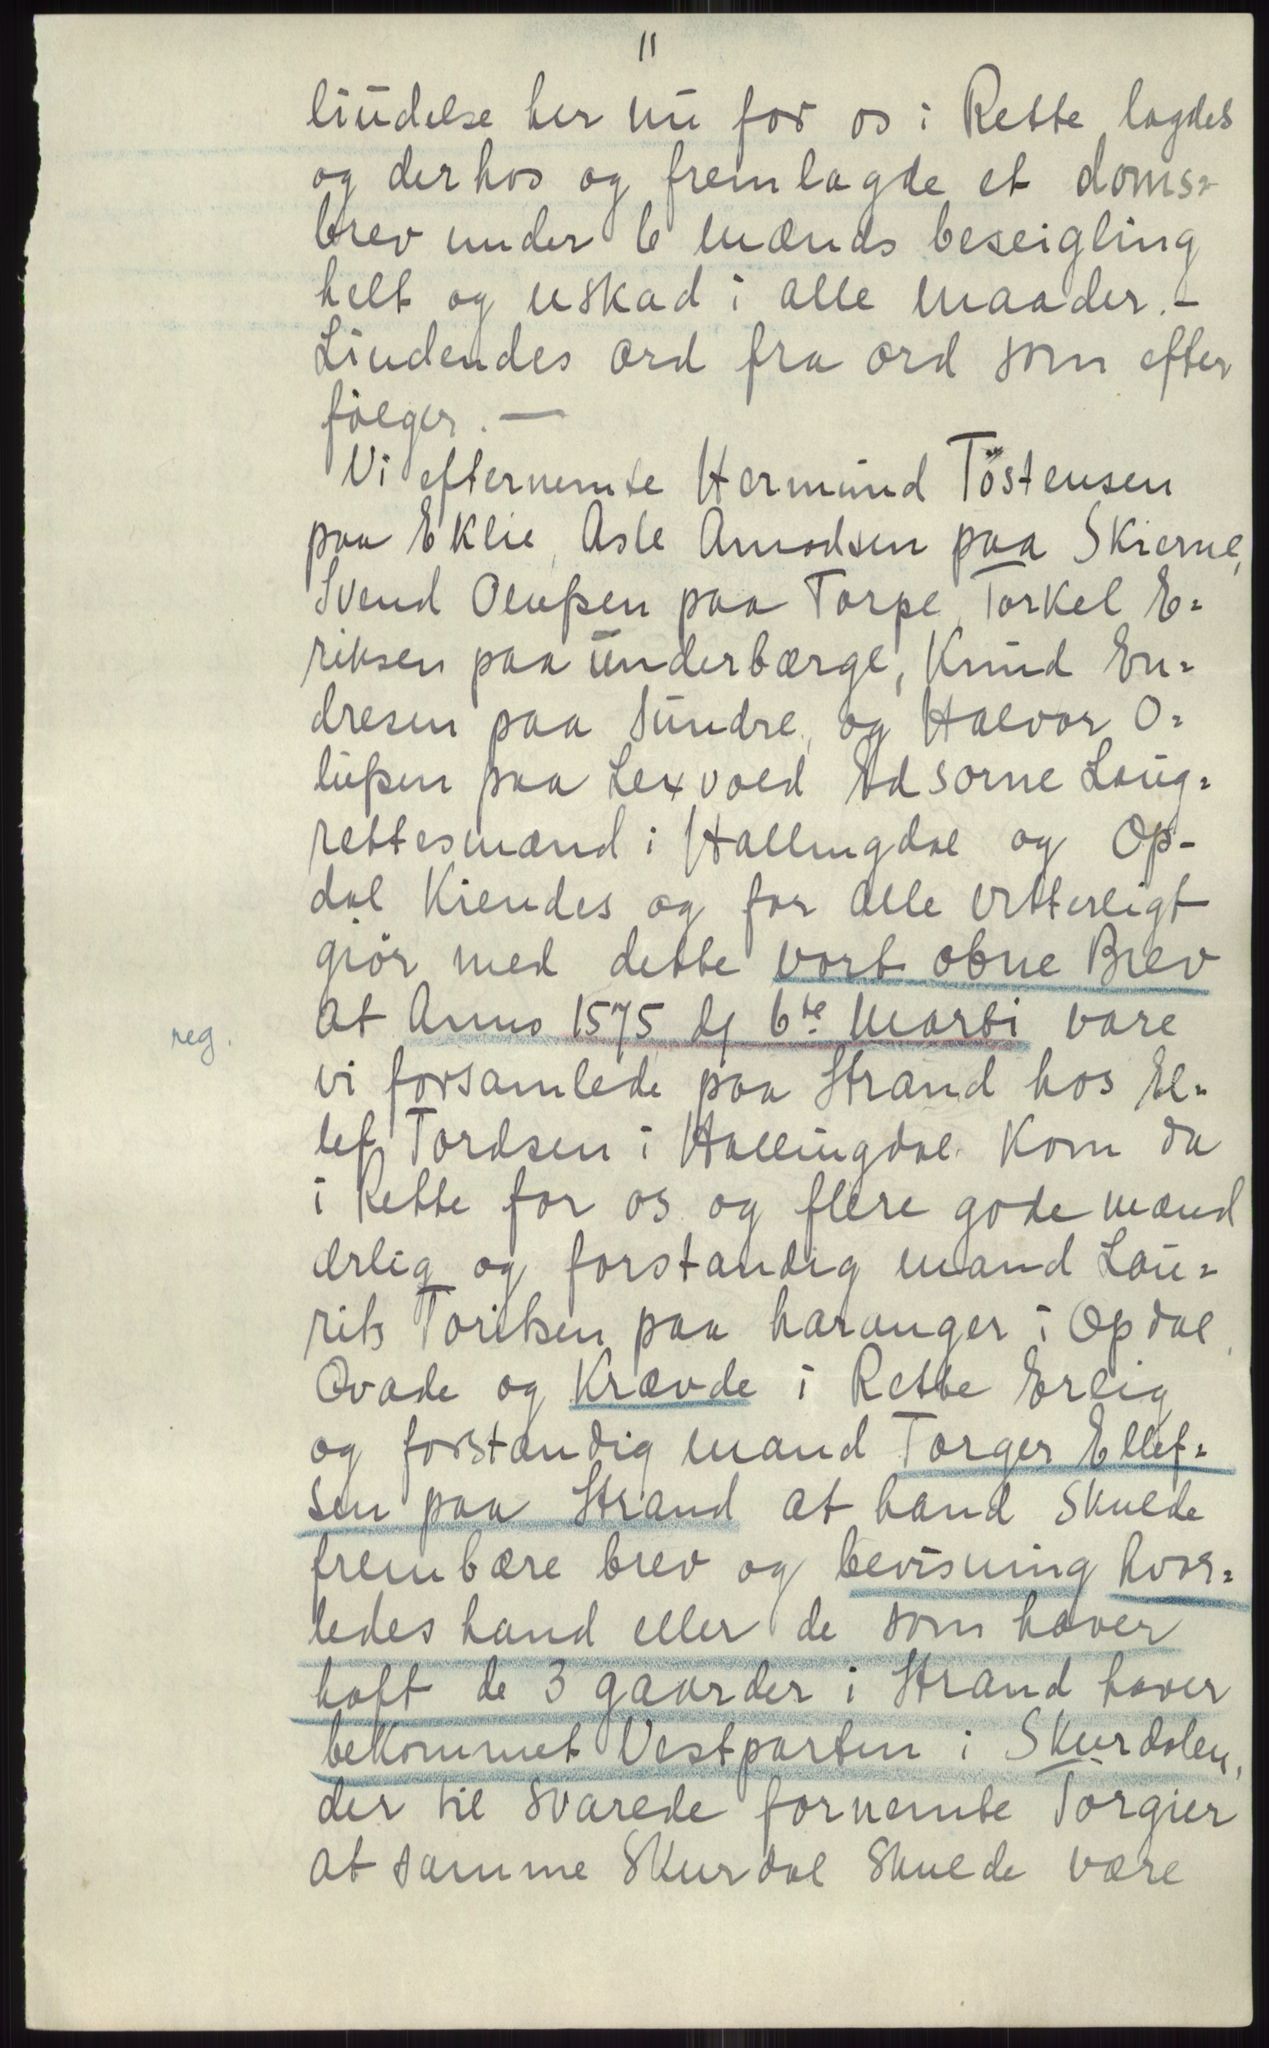 11
liudelse her nu for os i Rette lagdes
og derhos og fremlagde et doms=
brev under 6 mænds beseigling
helt og uskad i alle maader. –
Liudendes ord fra ord som efter
følger. —
Vi efternemte Hermund Töstensen
paa Eklie, Asle Amodsen paa Skierve,
Svend Olufsen paa Torpe, Torkel E=
riksen paa Underbærge, Knud En=
dresen paa Sundre, og Halvor O=
lufsen paa Lexvold Edsorne Laug=
rettesmænd i Hallingdal og Op-
dal Kiendes og for alle vitterligt
giör med dette vort obne Brev
reg.
at Anno 1575 d/ 6te Marti vare
vi forsamlede paa Strand hos El=
lef Tordsen i Hallingdal. Kom da
i Rette for os og flere gode mænd
ærlig og forstandig mand Lau=
rits Toritsen paa haranger i Opdal,
Qvade og Krævde i Rette Erlig
og forstandig mand Torger Ellef=
sen paa Strand at hand skulde
frembære brev og bevisning hvor=
ledes hand eller de som haver
haft de 3 gaarder i Strand haver
bekommet Vestparten i Skurdalen,
der til svarede fornemte Torgier
at samme Skurdal skulde være